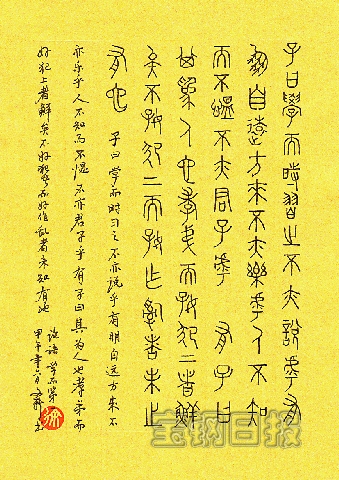 子曰學而時習之不亦說乎有
朋自遠方來不亦樂乎人不知
而不慍不亦君子乎 有子曰
其為人也孝弟而好犯上者鮮
矣不好犯上而好作亂者未之
有也
子曰学而时习之不亦说乎有朋自远方来不
亦乐乎人不知而不愠不亦君子乎有子曰其为人也孝弟而
好犯上者鲜矣不好犯上而好作乱者未知有也
论语 学而第
甲午年六月
宝钢日报